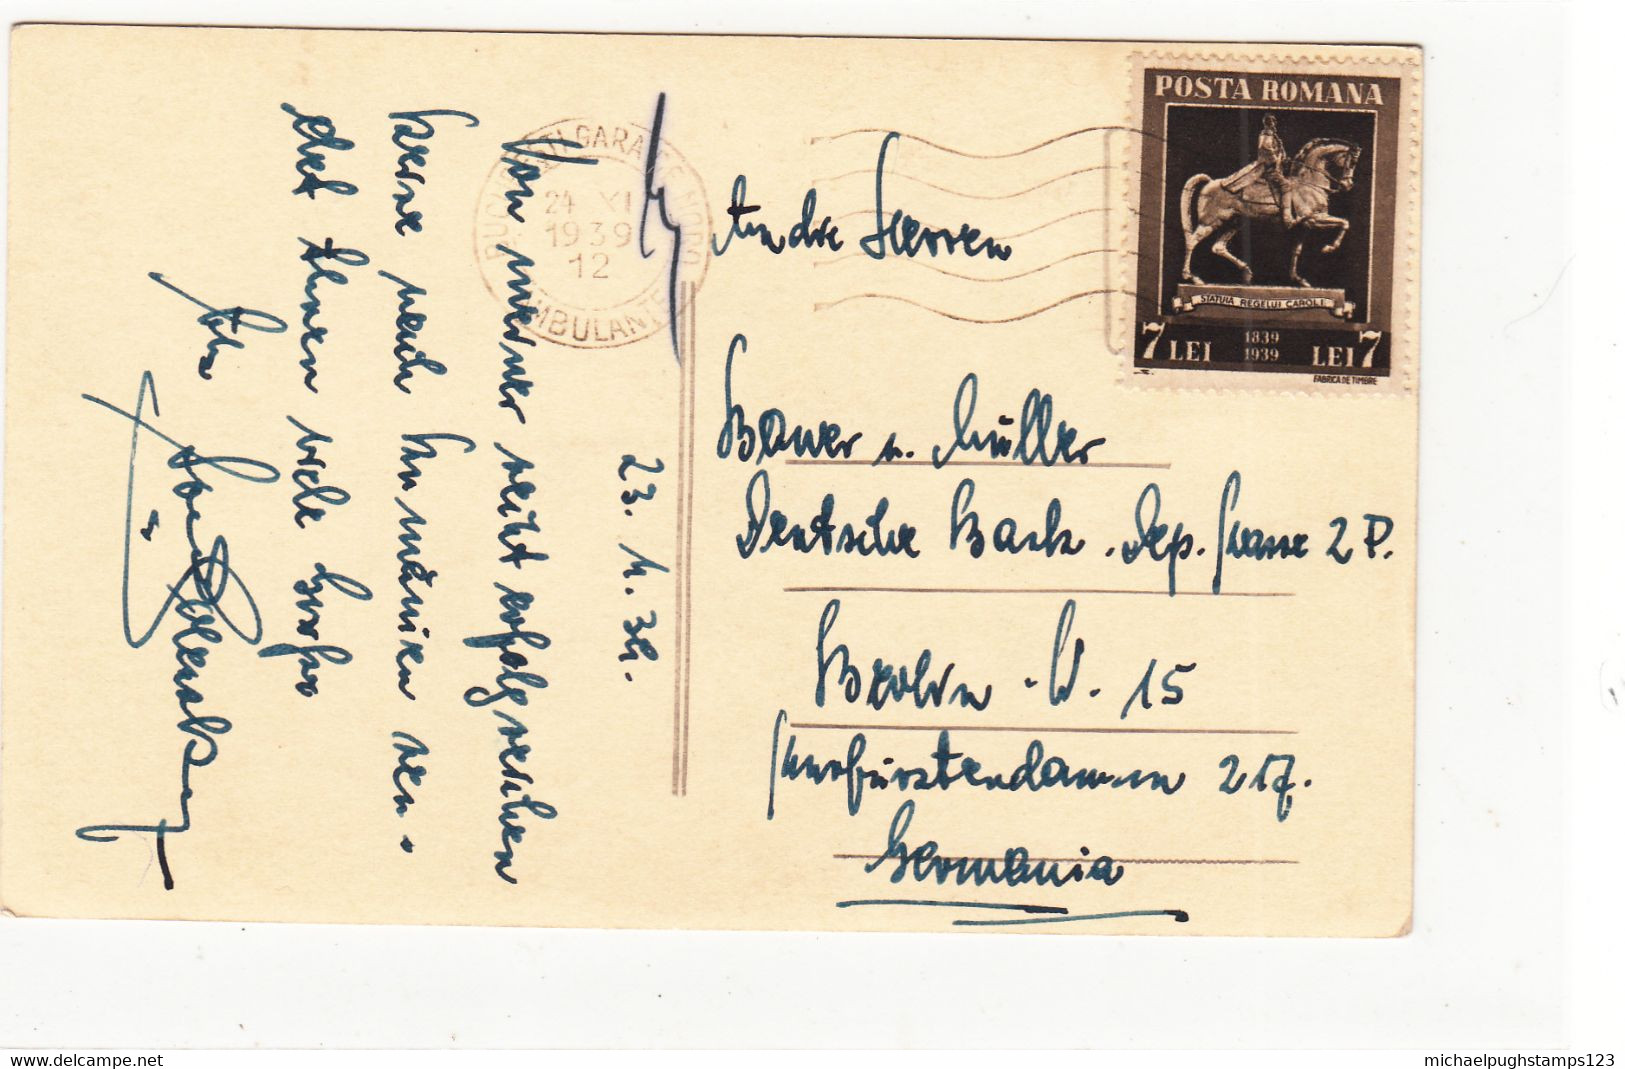 23. 11. 39.
Von meiner recht erfolgreichen
Reise nach Rumänien sen-
det Ihnen viele Grüsse
Ihr
BUCUREŞTI GARA DE NORD
24 XI
1939
12
AMBULANTE
POSTA ROMANA
STATUIA REGELUI CAROL I
7 LEI 1839 1939 LEI 7
FABRICA DE TIMBRE
An die Herren
Bauer u. Müller
Deutsche Bank. Dep. Kasse 2 P.
Berlin. W. 15
Kurfürstendamm 217.
Germania
delcampe.net
michaelpughstamps123